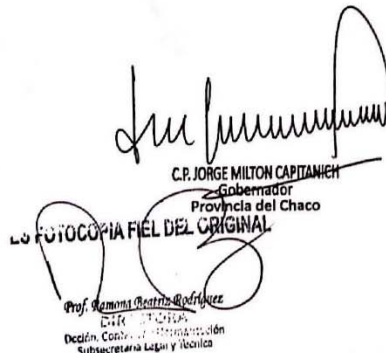 C.P. JORGE MILTON CAPITANICH
Gobernador
Provincia del Chaco
ES FOTOCOPIA FIEL DEL ORIGINAL
Prof. Ramona Beatriz Rodriguez
DIRECTORA
Dcción.
Subsecretaría Legal y Técnica